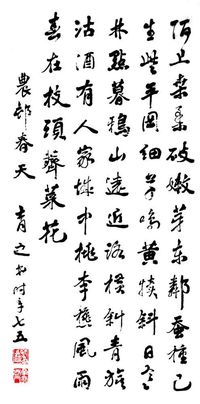 陌上柔桑破嫩芽東鄰蚕種已
生些平岡細草鳴黄犢斜日寒
林點暮鴉山遠近路横斜青旗
沽酒有人家城中桃李愁風雨
春在枝頭薺菜花
農邨春天 青之书时年七五